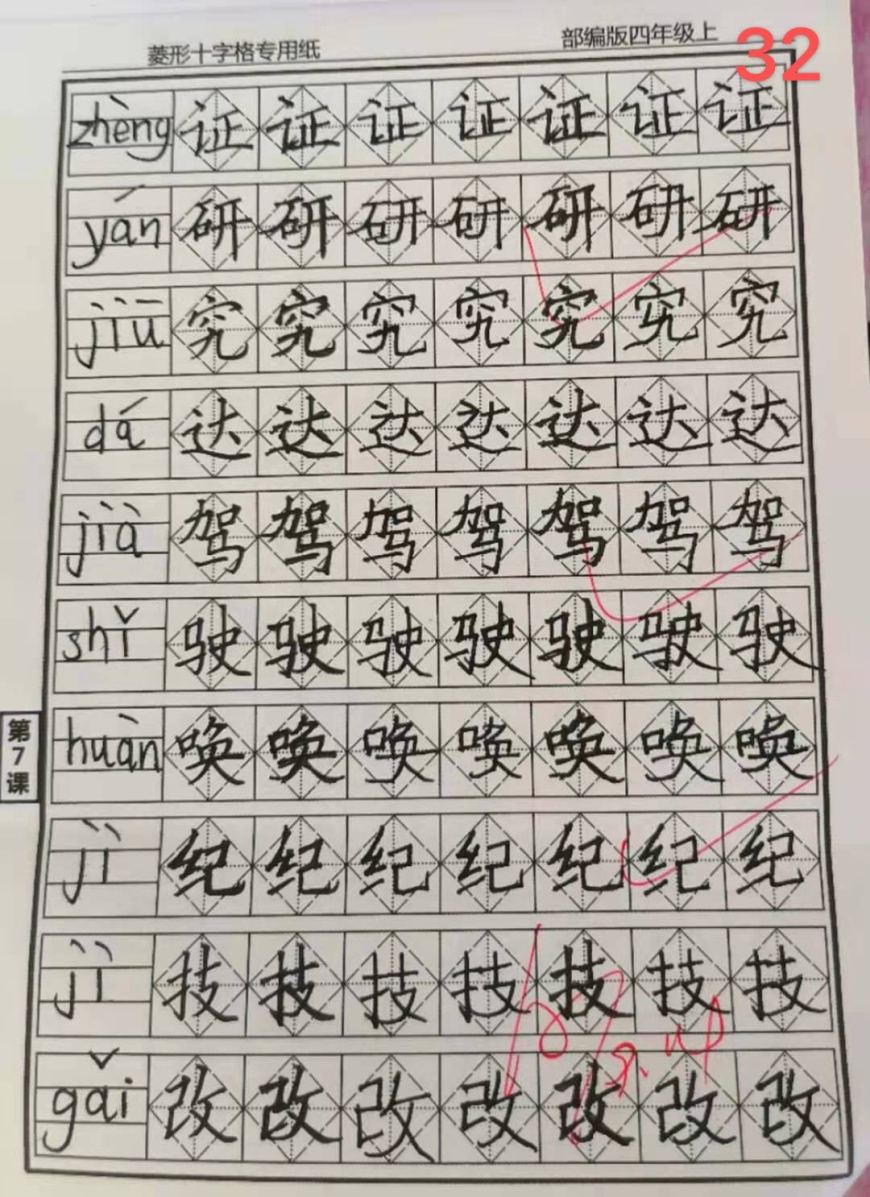 菱形十字格专用纸 部编版四年级上 32
zhèng 证 证 证 证 证 证 证
yán 研 研 研 研 研 研 研
jiū 究 究 究 究 究 究 究
dá 达 达 达 达 达 达 达
jià 驾 驾 驾 驾 驾 驾 驾
shǐ 驶 驶 驶 驶 驶 驶 驶
第7课
huàn 唤 唤 唤 唤 唤 唤 唤
jì 纪 纪 纪 纪 纪 纪 纪
jì 技 技 技 技 技 技 技
gǎi 改 改 改 改 改 改 改